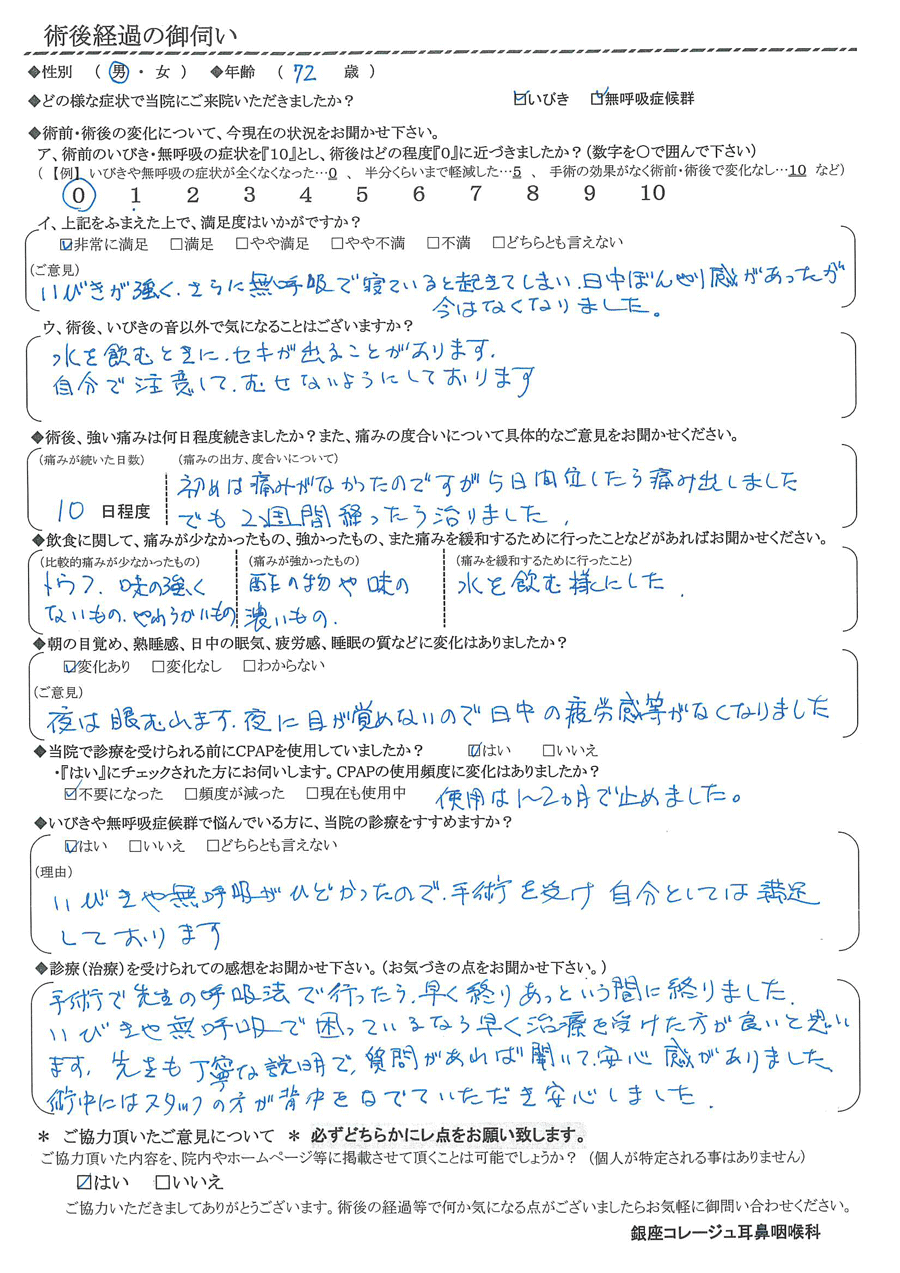 術後経過の御伺い
◆性別 ( 男 ・ 女 ) ◆年齢 ( 72 歳 )
◆どの様な症状で当院にご来院いただきましたか? ☑いびき ☑無呼吸症候群
◆術前・術後の変化について、今現在の状況をお聞かせ下さい。
ア、術前のいびき・無呼吸の症状を『10』とし、術後はどの程度『0』に近づきましたか?(数字を○で囲んで下さい)
(【例】いびきや無呼吸の症状が全くなくなった…0 、 半分くらいまで軽減した…5 、 手術の効果がなく術前・術後で変化なし…10 など)
0 1 2 3 4 5 6 7 8 9 10
イ、上記をふまえた上で、満足度はいかがですか?
☑非常に満足 □満足 □やや満足 □やや不満 □不満 □どちらとも言えない
(ご意見)
いびきが強く、さらに無呼吸で寝ていると起きてしまい、日中ぼんやり感があったが
今はなくなりました。
ウ、術後、いびきの音以外で気になることはございますか?
水を飲むときに、セキが出ることがあります。
自分で注意して、むせないようにしております
◆術後、強い痛みは何日程度続きましたか?また、痛みの度合いについて具体的なご意見をお聞かせください。
(痛みが続いた日数) (痛みの出方、度合いについて)
初めは痛みがなかったのですが5日間位したら痛み出しました
10 日程度
でも2週間経ったら治りました。
◆飲食に関して、痛みが少なかったもの、強かったもの、また痛みを緩和するために行ったことなどがあればお聞かせください。
(比較的痛みが少なかったもの) (痛みが強かったもの) (痛みを緩和するために行ったこと)
トウフ、味の強く 酢の物や味の 水を飲む様にした。
ないもの、やわらかいもの 濃いもの。
◆朝の目覚め、熟睡感、日中の眠気、疲労感、睡眠の質などに変化はありましたか?
☑変化あり □変化なし □わからない
(ご意見)
夜は眠むれます。夜に目が覚めないので日中の疲労感等がなくなりました
◆当院で診療を受けられる前にCPAPを使用していましたか? ☑はい □いいえ
・『はい』にチェックされた方にお伺いします。CPAPの使用頻度に変化はありましたか?
☑不要になった □頻度が減った □現在も使用中 使用は1~2ヵ月で止めました。
◆いびきや無呼吸症候群で悩んでいる方に、当院の診療をすすめますか?
☑はい □いいえ □どちらとも言えない
(理由)
いびきや無呼吸がひどかったので、手術を受け 自分としては満足
しております
◆診療(治療)を受けられての感想をお聞かせ下さい。(お気づきの点をお聞かせ下さい。)
手術で先生の呼吸法で行ったら、早く終りあっという間に終りました。
いびきや無呼吸で困っているなら早く治療を受けた方が良いと思い
ます。先生も丁寧な説明で、質問があれば聞いて、安心感がありました、
術中にはスタッフの方が背中をなでていただき安心しました。
* ご協力頂いたご意見について * 必ずどちらかにレ点をお願い致します。
ご協力頂いた内容を、院内やホームページ等に掲載させて頂くことは可能でしょうか? (個人が特定される事はありません)
☑はい □いいえ
ご協力いただきましてありがとうございます。術後の経過等で何か気になる点がございましたらお気軽に御問い合わせください。
銀座コレージュ耳鼻咽喉科